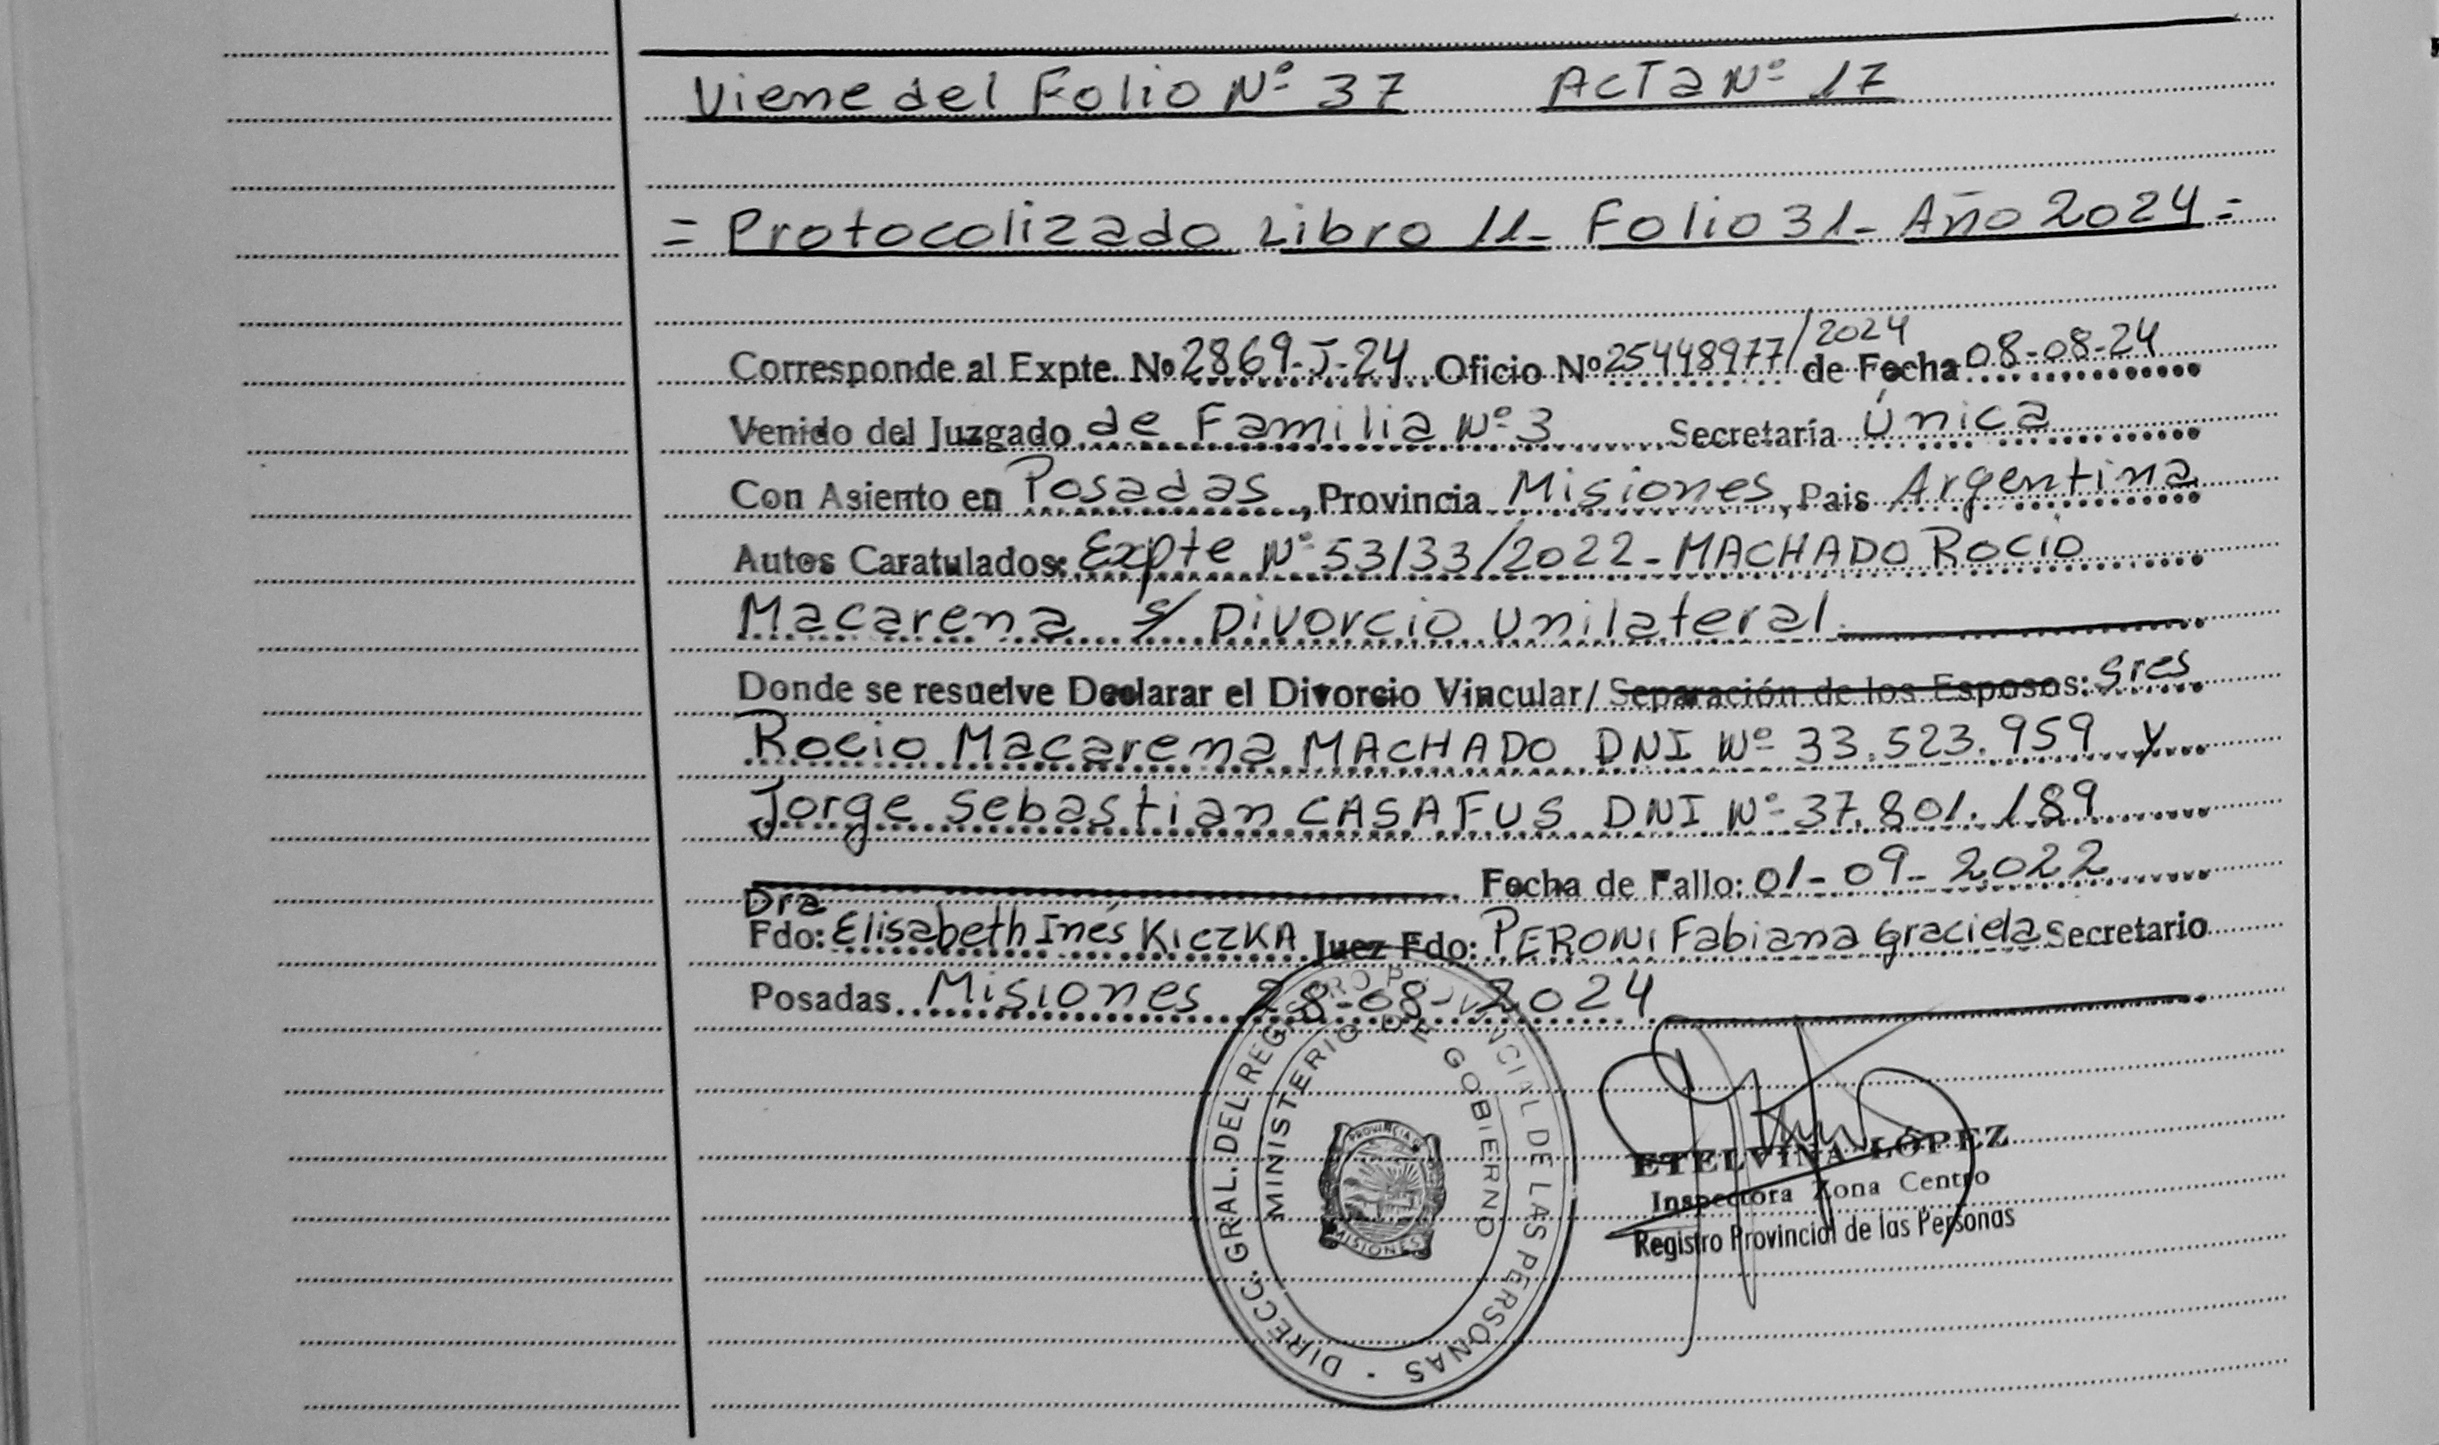 Viene del Folio Nº 37 Acta Nº 17
= Protocolizado Libro 11- Folio 31- Año 2024 =
Corresponde al Expte. Nº 2869-J-24 Oficio Nº 25448977/2024 de Fecha 08-08-24
Venido del Juzgado de Familia Nº 3 Secretaría Única
Con Asiento en Posadas, Provincia Misiones, Pais Argentina
Autos Caratulados: Expte Nº 53133/2022- MACHADO ROCIO
Macarena s/ Divorcio Unilateral.
Donde se resuelve Declarar el Divorcio Vincular/ Separación de los Esposos: Sres
Rocio Macarena MACHADO DNI Nº 33.523.959 y
Jorge Sebastian CASAFUS DNI Nº 37.801.189
Fecha de Fallo: 01-09-2022
Dra
Fdo: Elisabeth Inés KICZKA Juez Fdo: PERONI Fabiana Graciela Secretario
Posadas Misiones 28-08-2024
DIRECC. GRAL. DEL REGISTRO PROVINCIAL DE LAS PERSONAS -
MINISTERIO DE GOBIERNO
PROVINCIA DE
MISIONES
ETELVINA LÓPEZ
Inspectora Zona Centro
Registro Provincial de las Personas